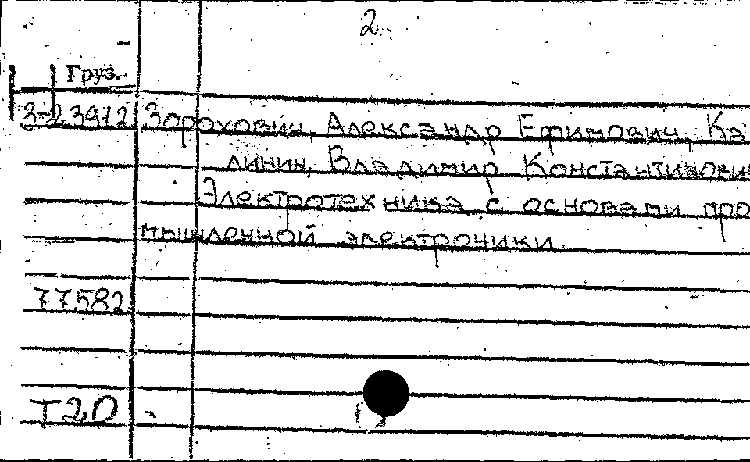 2
Груз.
3-23912 Зорохович, Александр Ефимович, Ка
линин, Владимир Константинови
Электротехника с основами про
мышленной электроники.
77582
Т20